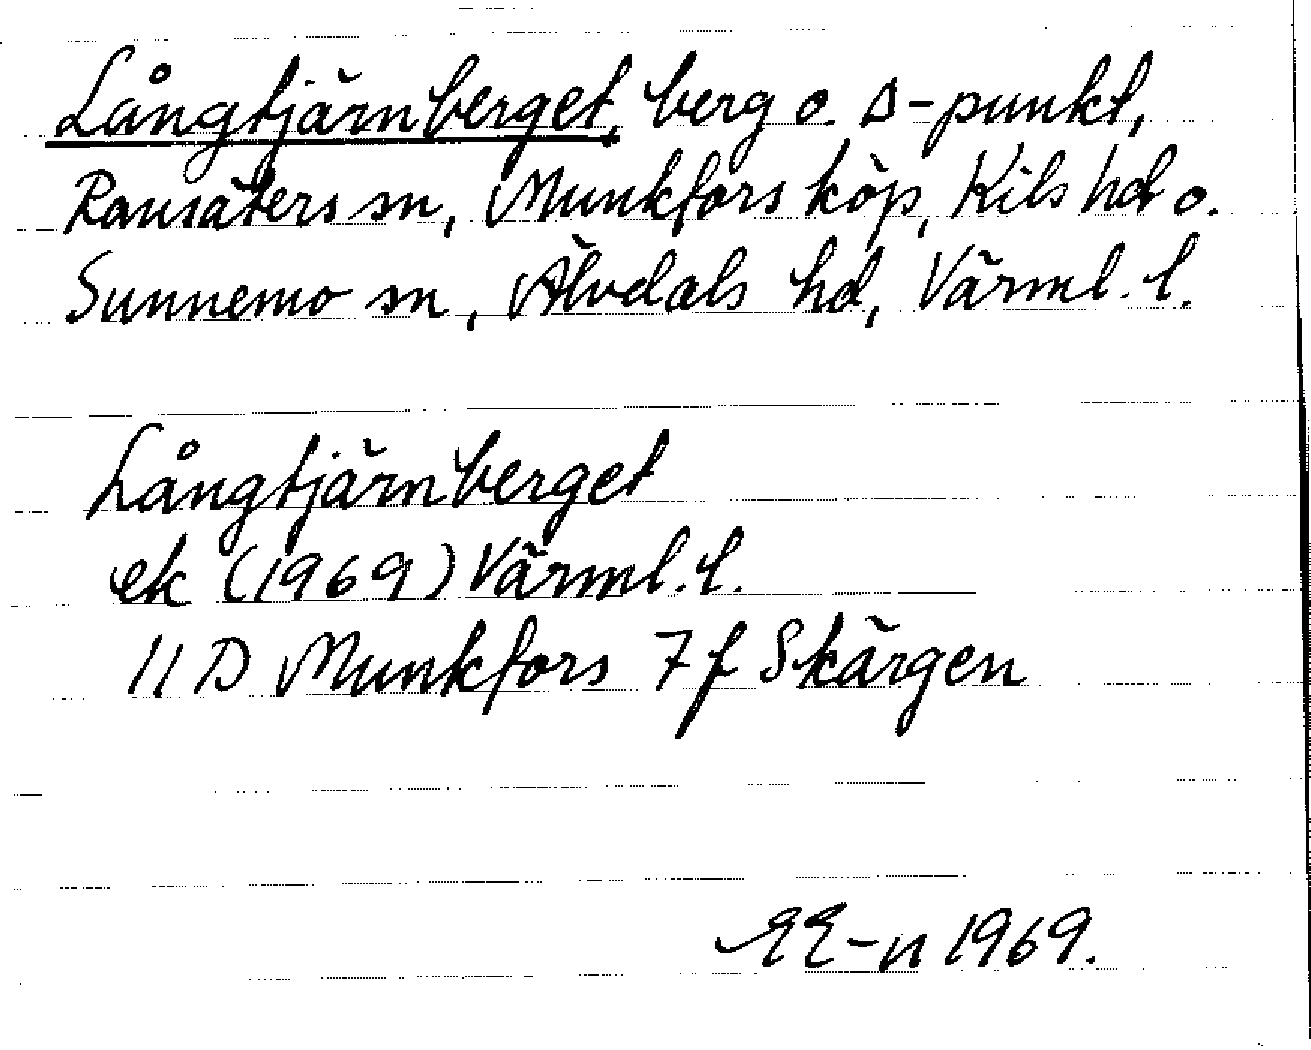 Långtjärnberget, berg o. Δ-punkt,
Ransäters sn, Munkfors köp, Kils hd o.
Sunnemo sn, Älvdals hd, Värml. l.
Långtjärnberget
ek (1969) Värml. l.
11 D Munkfors 7 f Skärgen
EE-n 1969.